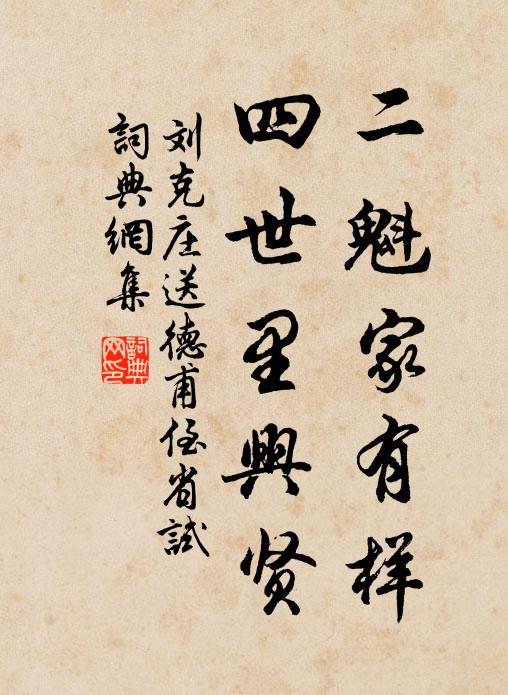 二魁家有样
四世里興贤
刘克庄送德甫侄省試
詞典網集
詞典网印